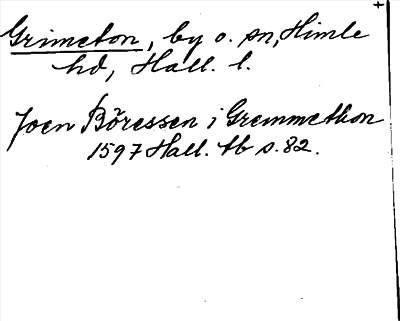 Grimeton, by o. sn, Himle
hd, Hall. l.
Joen Böressen i Gremmethon
1597 Hall. tb s. 82.